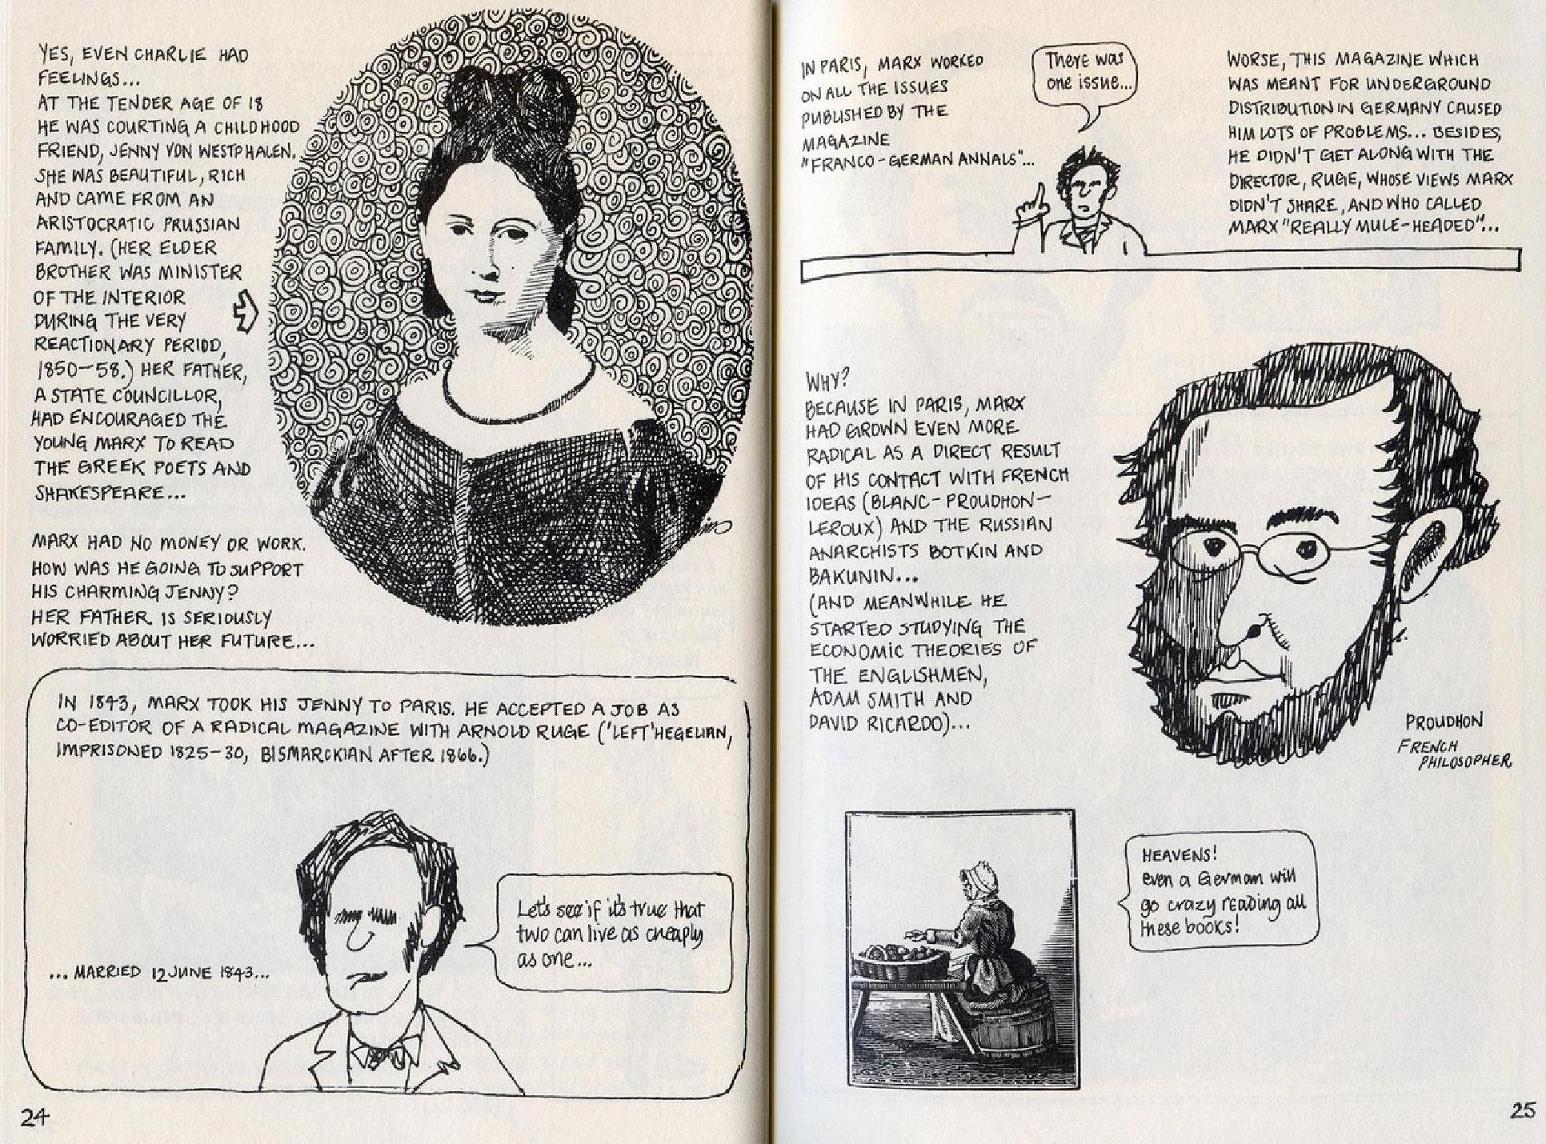 YES, EVEN CHARLIE HAD
FEELINGS...
AT THE TENDER AGE OF 18
HE WAS COURTING A CHILDHOOD
FRIEND, JENNY VON WESTPHALEN.
SHE WAS BEAUTIFUL, RICH
AND CAME FROM AN
ARISTOCRATIC PRUSSIAN
FAMILY. (HER ELDER
BROTHER WAS MINISTER
OF THE INTERIOR
DURING THE VERY
REACTIONARY PERIOD,
1850-58.) HER FATHER,
A STATE COUNCILLOR,
HAD ENCOURAGED THE
YOUNG MARX TO READ
THE GREEK POETS AND
SHAKESPEARE...
MARX HAD NO MONEY OR WORK.
HOW WAS HE GOING TO SUPPORT
HIS CHARMING JENNY?
HER FATHER IS SERIOUSLY
WORRIED ABOUT HER FUTURE...
IN 1843, MARX TOOK HIS JENNY TO PARIS. HE ACCEPTED A JOB AS
CO-EDITOR OF A RADICAL MAGAZINE WITH ARNOLD RUGE ('LEFT' HEGELIAN,
IMPRISONED 1825-30, BISMARCKIAN AFTER 1866.)
Let's see if it's true that
two can live as cheaply
as one...
... MARRIED 12 JUNE 1843...
24
IN PARIS, MARX WORKED
ON ALL THE ISSUES
PUBLISHED BY THE
MAGAZINE
"FRANCO-GERMAN ANNALS"...
There was
one issue...
WORSE, THIS MAGAZINE WHICH
WAS MEANT FOR UNDERGROUND
DISTRIBUTION IN GERMANY CAUSED
HIM LOTS OF PROBLEMS... BESIDES,
HE DIDN'T GET ALONG WITH THE
DIRECTOR, RUGE, WHOSE VIEWS MARX
DIDN'T SHARE, AND WHO CALLED
MARX "REALLY MULE-HEADED"...
WHY?
BECAUSE IN PARIS, MARX
HAD GROWN EVEN MORE
RADICAL AS A DIRECT RESULT
OF HIS CONTACT WITH FRENCH
IDEAS (BLANC-PROUDHON-
LEROUX) AND THE RUSSIAN
ANARCHISTS BOTKIN AND
BAKUNIN...
(AND MEANWHILE HE
STARTED STUDYING THE
ECONOMIC THEORIES OF
THE ENGLISHMEN,
ADAM SMITH AND
DAVID RICARDO)...
PROUDHON
FRENCH
PHILOSOPHER
HEAVENS!
even a German will
go crazy reading all
these books!
25